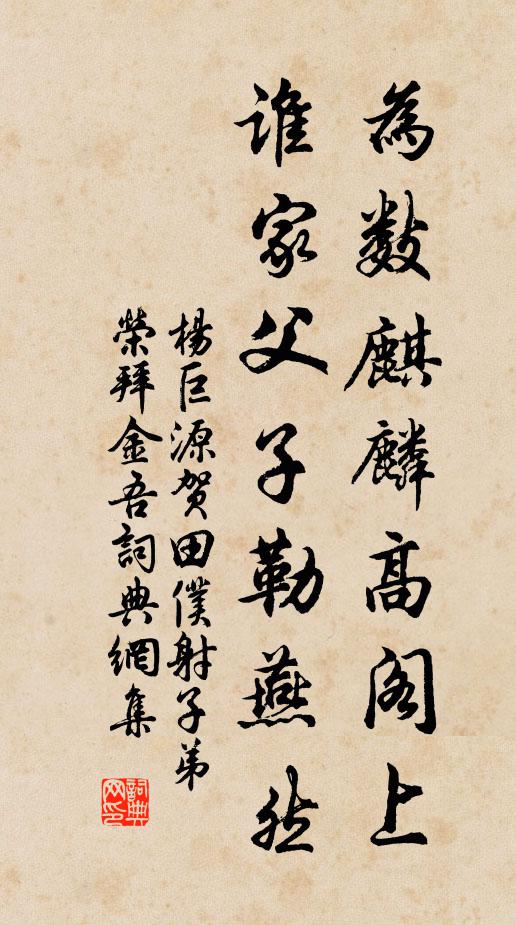 為數麒麟高阁上
誰家父子勒燕然
楊巨源贺田僕射子弟
榮拜金吾詞典網集
詞典網印